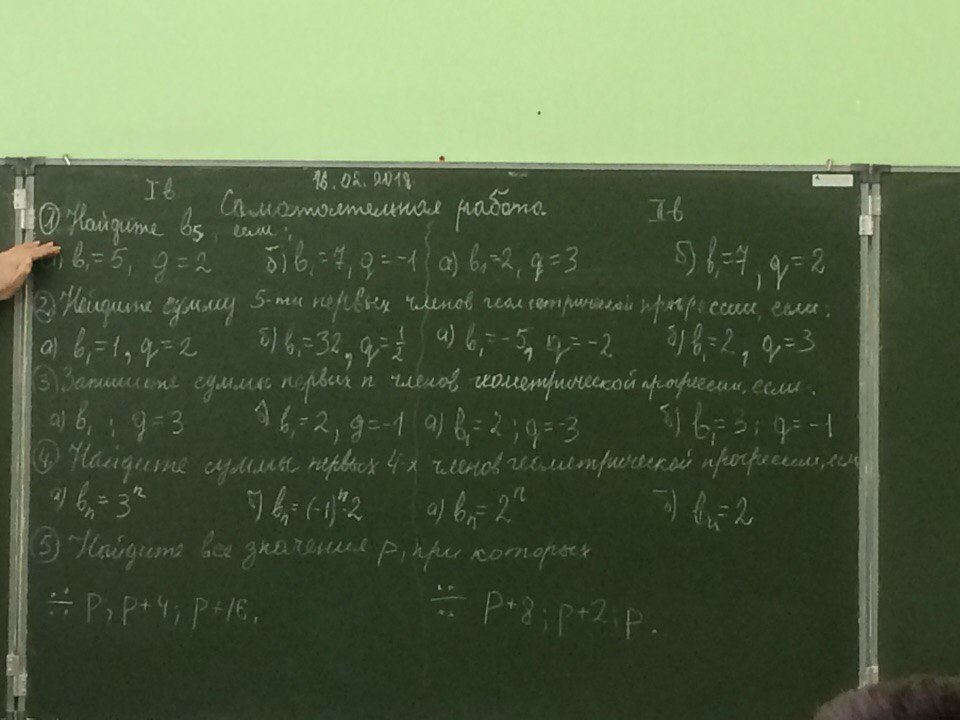 16.02.2018
I в Самостоятельная работа II в
① Найдите b₅, если:
) b₁=5, q=2 б) b₁=7, q=-1 а) b₁=2, q=3 б) b₁=7, q=2
② Найдите сумму 5-ти первых членов геометрической прогрессии, если:
а) b₁=1, q=2 б) b₁=32, q=1/2 а) b₁=-5, q=-2 б) b₁=2, q=3
③ Запишите суммы первых n членов геометрической прогрессии, если:
а) b₁ ; q=3 ) b₁=2, q=-1 а) b₁=2; q=-3 б) b₁=3; q=-1
④ Найдите суммы первых 4-х членов геометрической прогрессии, если
а) bₙ=3ⁿ ) bₙ=(-1)ⁿ·2 а) bₙ=2ⁿ б) bₙ=2
⑤ Найдите все значения p, при которых
∺ p; p+4; p+16. ∺ p+8; p+2; p.